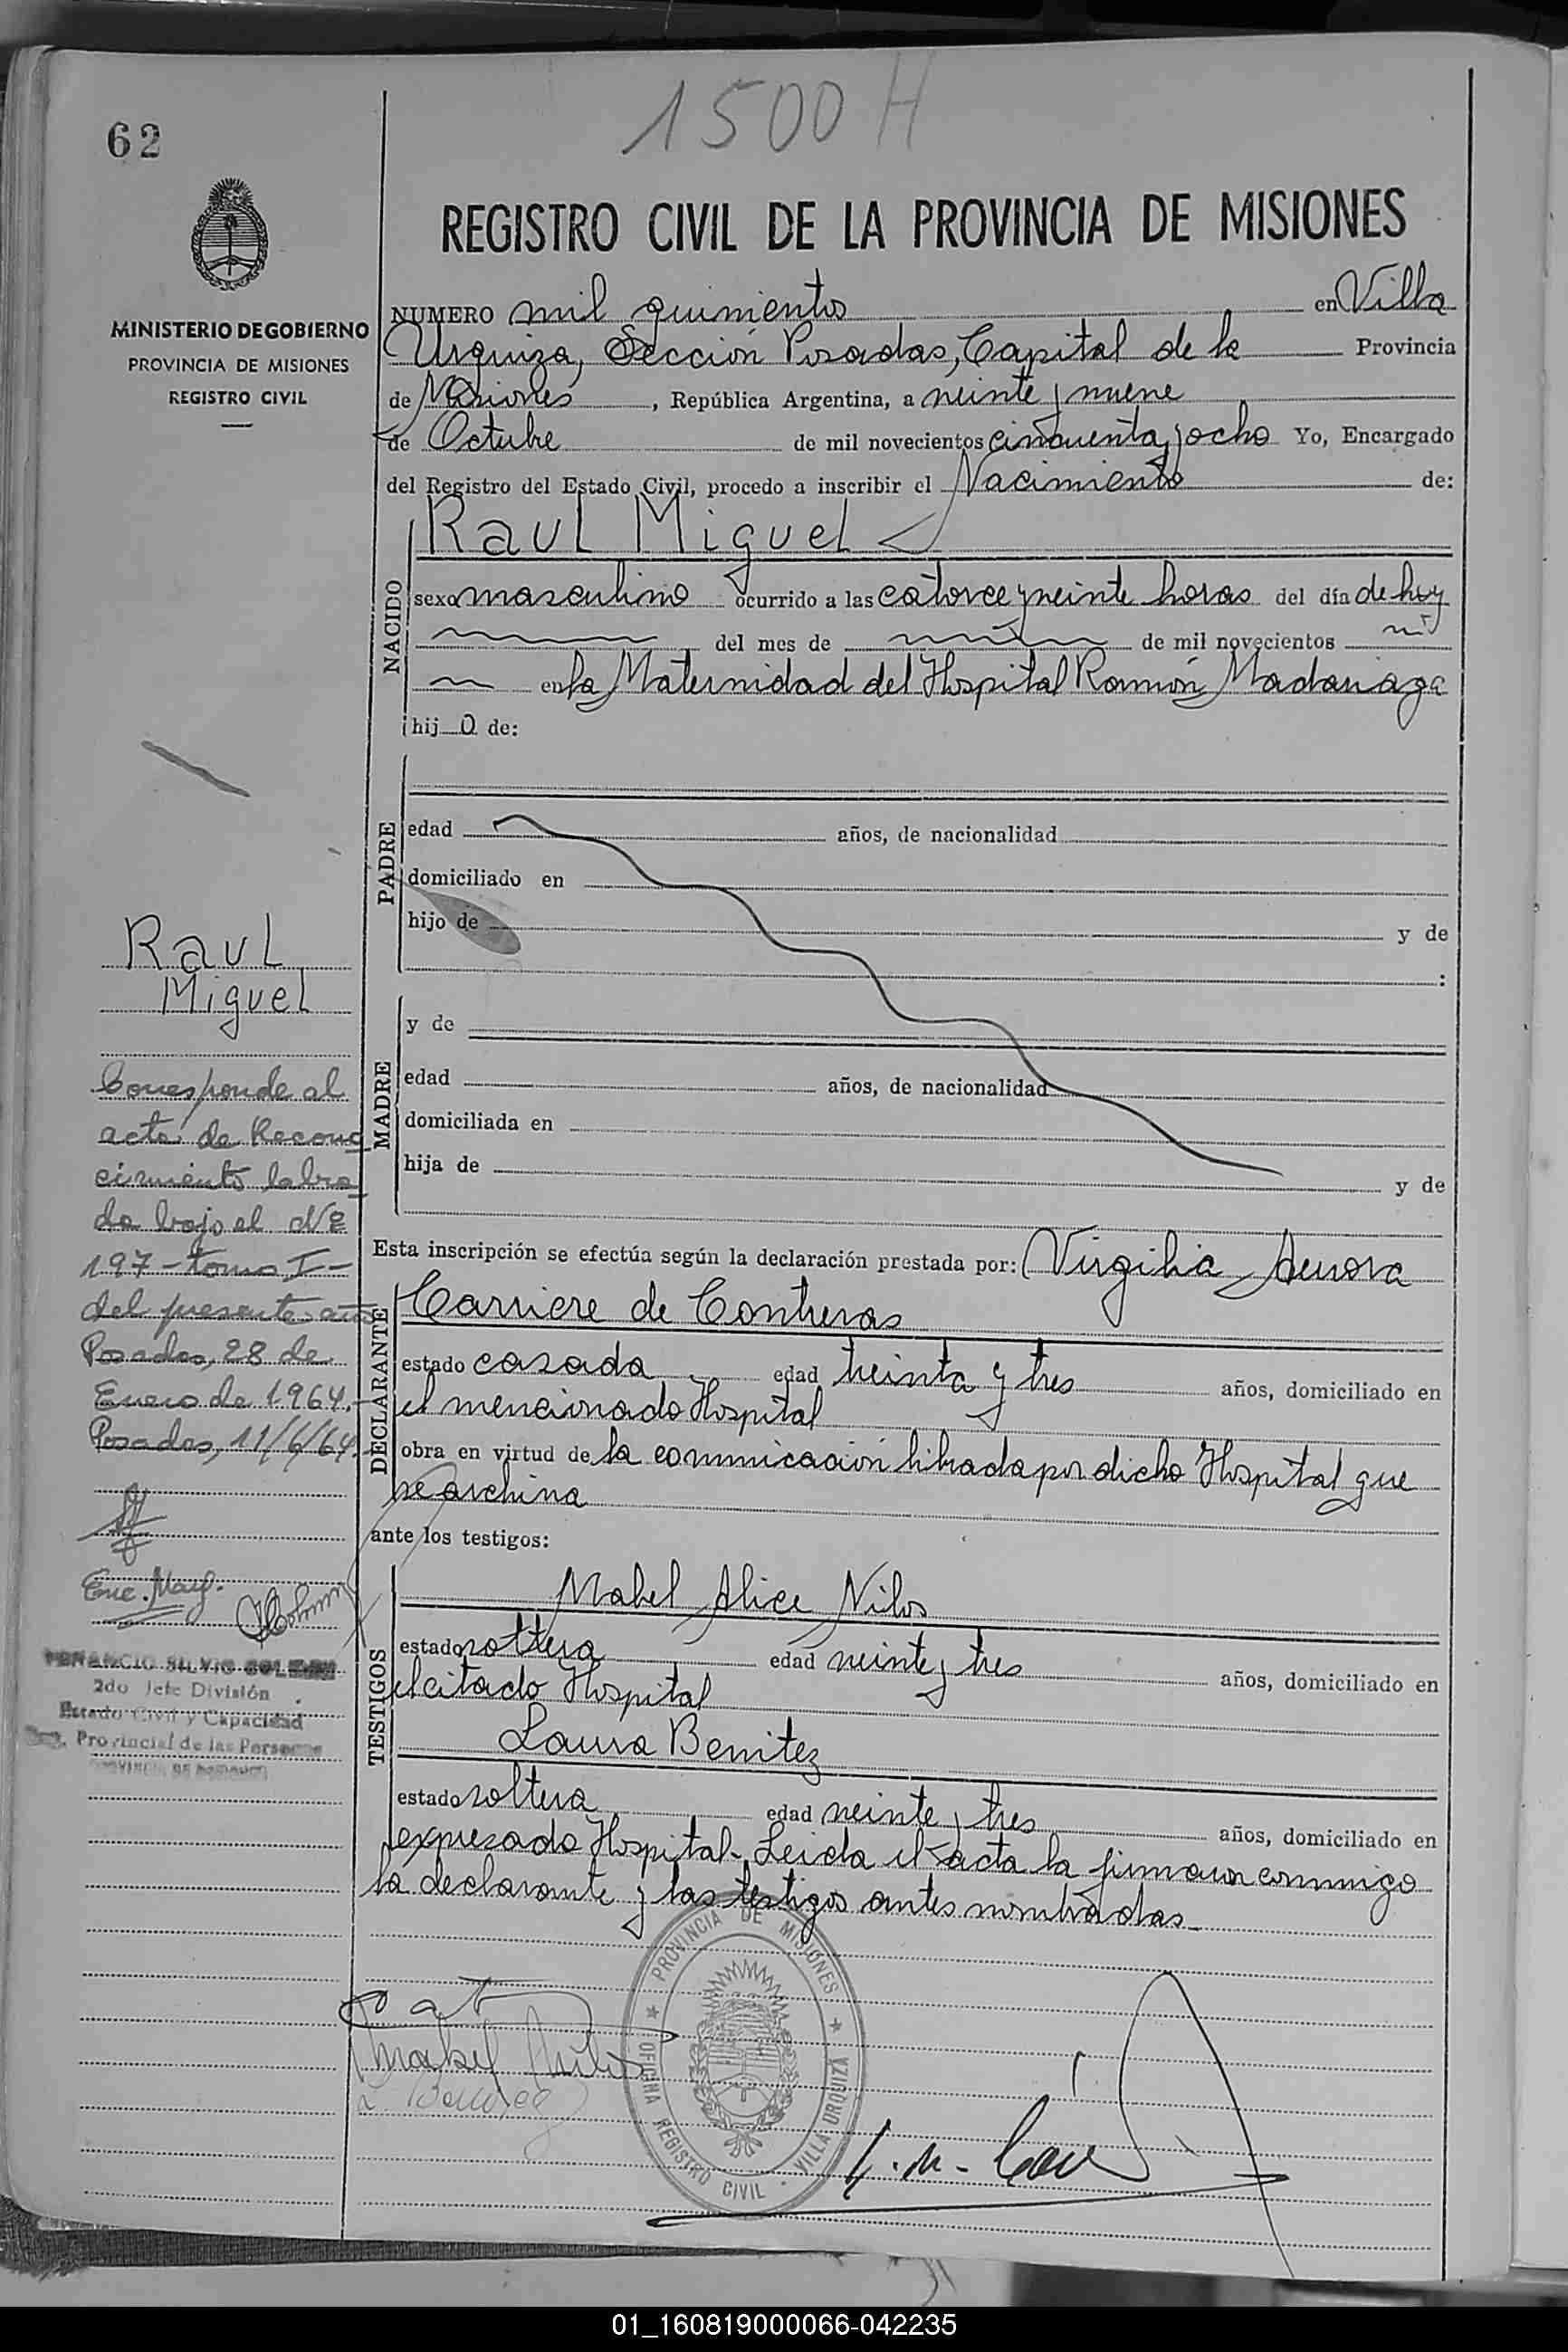 1500 H
62
REGISTRO CIVIL DE LA PROVINCIA DE MISIONES
MINISTERIO DE GOBIERNO
PROVINCIA DE MISIONES
REGISTRO CIVIL
NUMERO mil quinientos en Villa
Urquiza, Sección Posadas, Capital de la Provincia
de Misiones, República Argentina, a veinte y nueve
de Octubre de mil novecientos cincuenta y ocho Yo, Encargado
del Registro del Estado Civil, procedo a inscribir el Nacimiento de:
Raul Miguel
NACIDO
sexo masculino ocurrido a las catorce y veinte horas del día de hoy
del mes de de mil novecientos
en la Maternidad del Hospital Ramón Madariaga
hij o de:
PADRE
edad años, de nacionalidad
domiciliado en
hijo de y de
:
MADRE
y de
edad años, de nacionalidad
domiciliada en
hija de y de
Raul
Miguel
Corresponde al
acta de Recono
cimiento labra
da bajo el Nº
197 - tomo I -
del presente año
Posadas, 28 de
Enero de 1964.-
Posadas, 11/6/64.
Enc. Marg.
2do Jefe División
Estado Civil y Capacidad
Provincial de las Personas
Esta inscripción se efectúa según la declaración prestada por: Virgilia
Carriere de Contreras
DECLARANTE
estado casada edad treinta y tres años, domiciliado en
el mencionado Hospital
obra en virtud de la comunicación librada por dicho Hospital que
se archiva
ante los testigos:
TESTIGOS
Mabel Alice Nilos
estado soltera edad veinte y tres años, domiciliado en
el citado Hospital
Laura Benitez
estado soltera edad veinte y tres años, domiciliado en
expresado Hospital.- Leida el acta la firmaron conmigo
la declarante y las testigos antes nombradas.-
PROVINCIA DE MISIONES
OFICINA REGISTRO CIVIL - VILLA URQUIZA
01_160819000066-042235